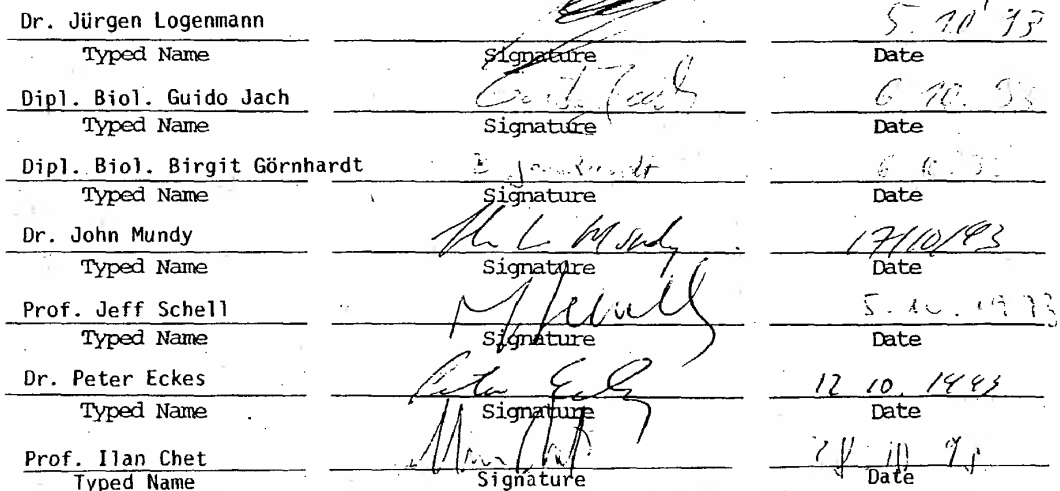 Dr. Jürgen Logenmann 5. 10 93
Typed Name Signature Date
Dipl. Biol. Guido Jach Guido Jach 6 10. 93
Typed Name Signature Date
Dipl. Biol. Birgit Görnhardt
Typed Name Signature Date
Dr. John Mundy John Mundy 17/10/93
Typed Name Signature Date
Prof. Jeff Schell 5. 10. 1993
Typed Name Signature Date
Dr. Peter Eckes Peter Eckes 12 10. 1993
Typed Name Signature Date
Prof. Ilan Chet
Typed Name Signature Date